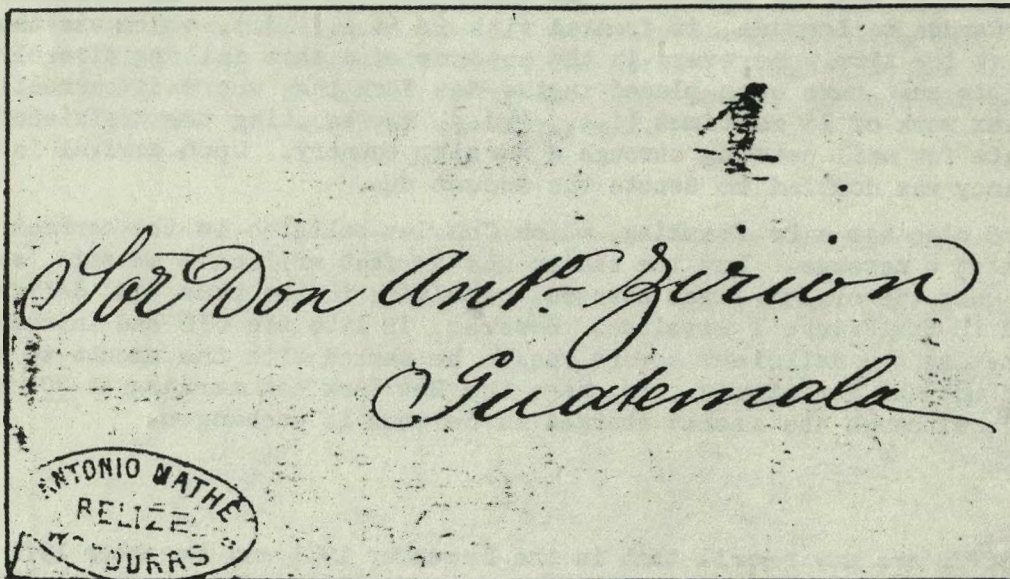 Sor Don Anto Zirion
Guatemala
ANTONIO MATHÉ
BELIZE
HONDURAS